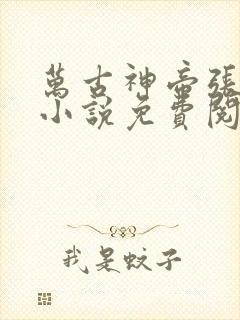 萬古神帝張
小說免費閱
我是蚊子